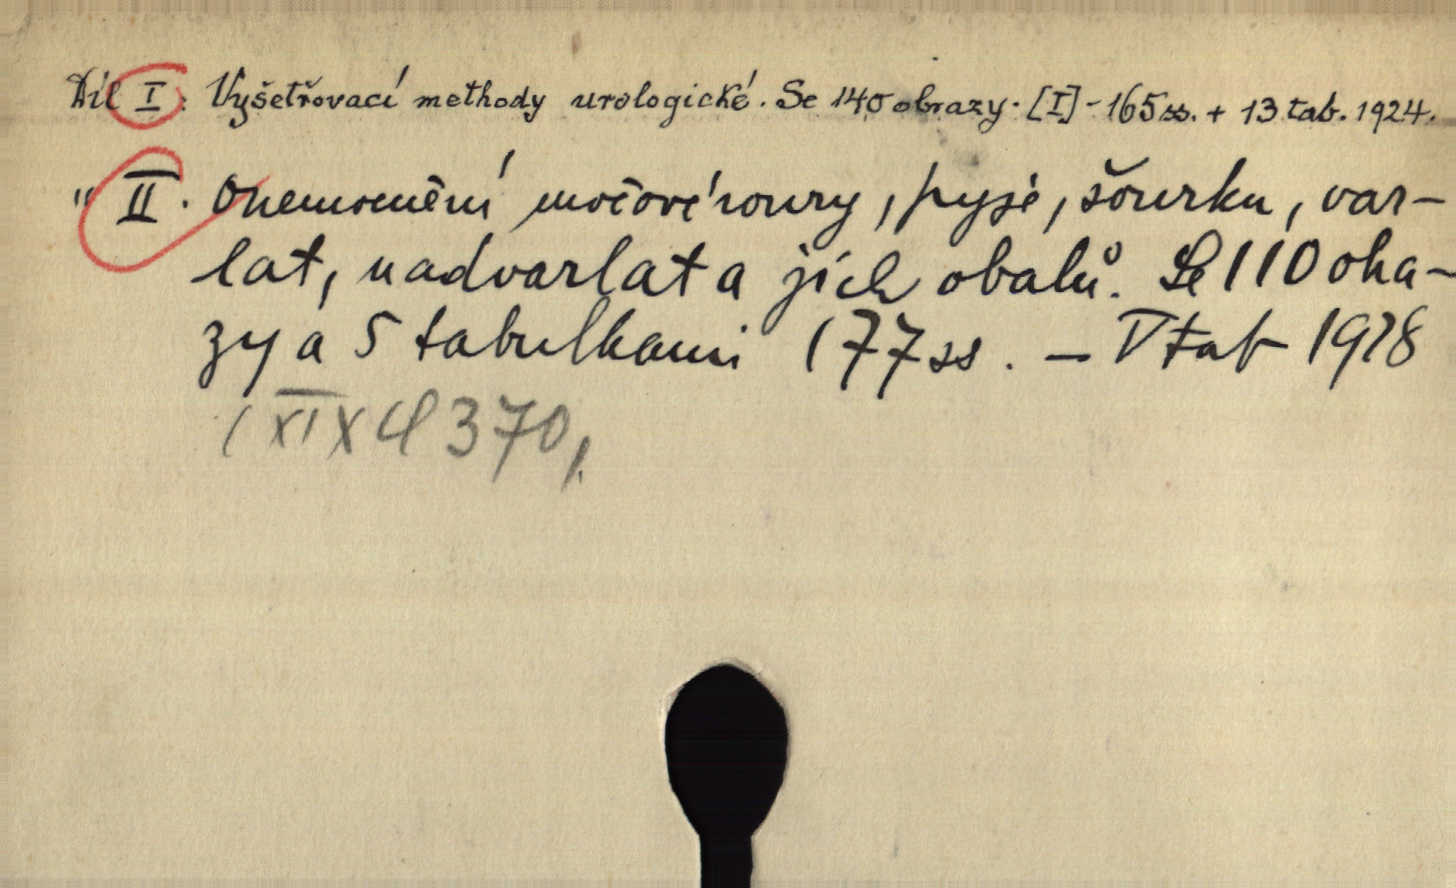 Díl I: Vyšetřovací methody urologické. Se 140 obrazy. [I] - 165 ss. + 13 tab. 1924.
" II. Onemocnění močové roury, pyje, šourku, var-
lat, nadvarlat a jich obalů. Se 110 obra-
zy a 5 tabulkami 177 ss. — V tab 1928
XIX 370,